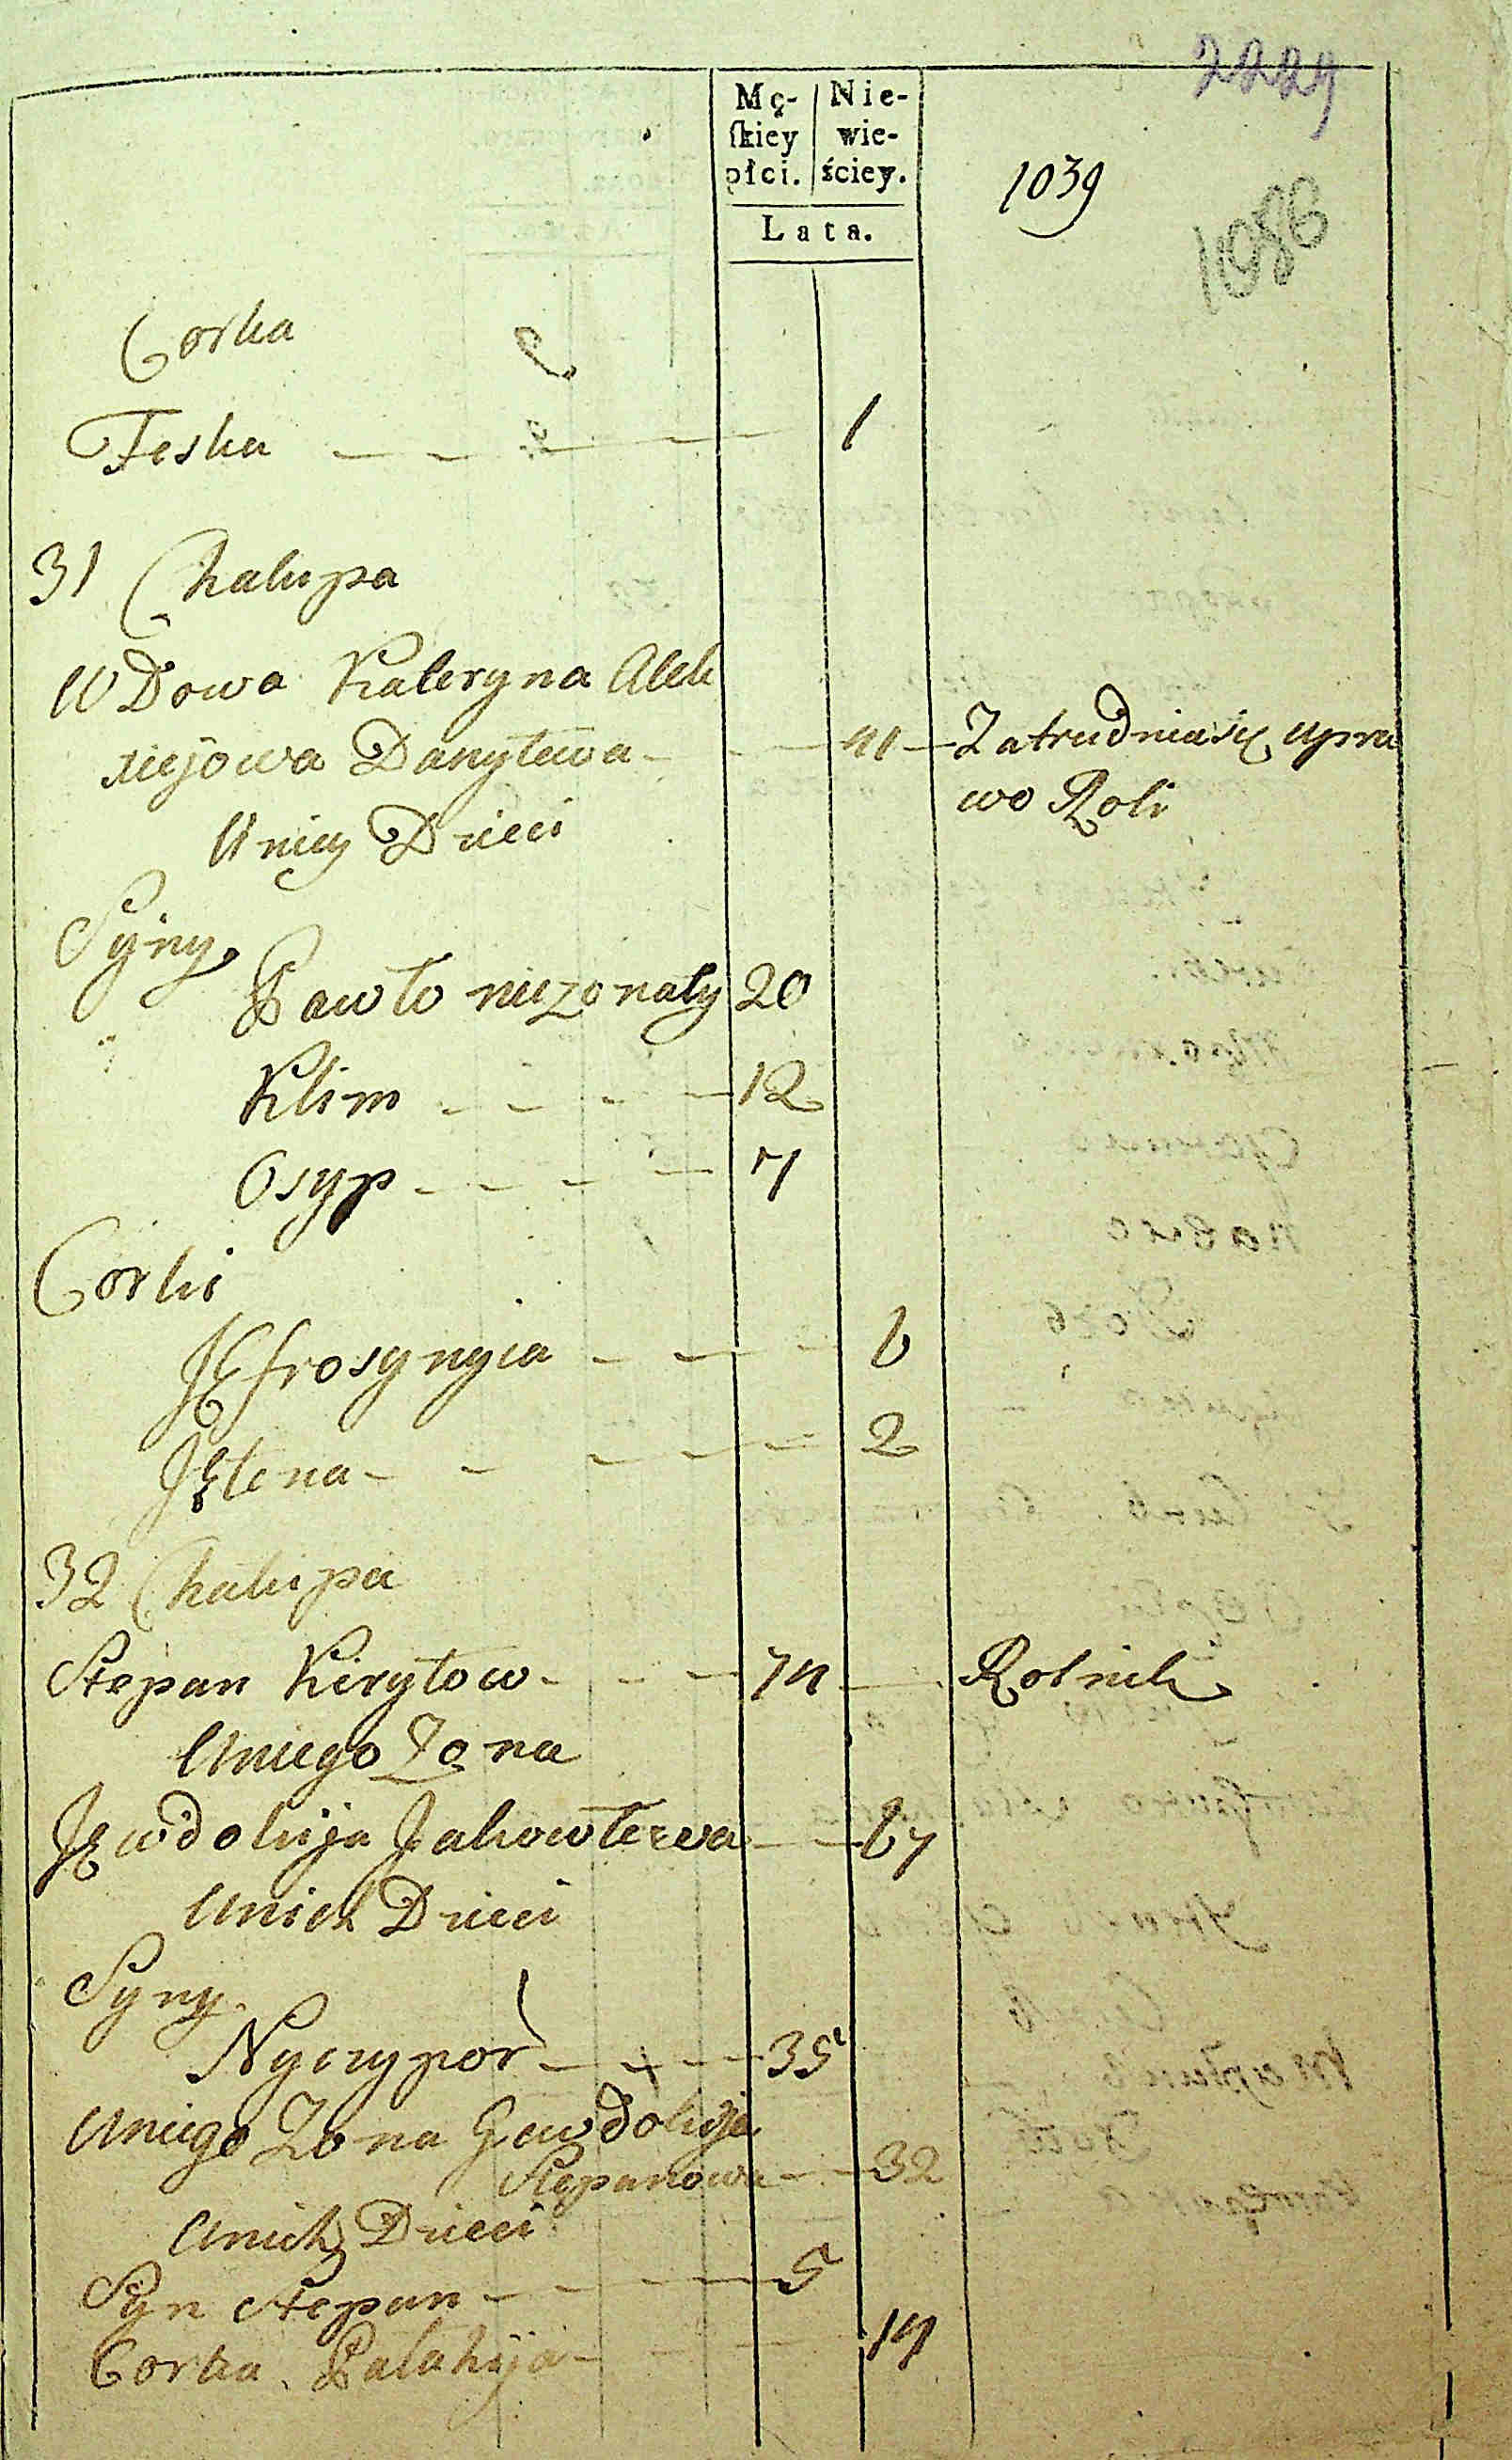 2229
Mę- Nie-
ſkiey wie-
płci. ściey.
Lata.
1039
1086
Corka
Feska 1
31 Chalupa
WDowa Kateryna Alek
siejowa Danyłewa 41 Zatrudnia się upra
wo Roli
Uniey Dzieci
Syny
Pawło niezonaty 20
Klim 12
Osyp 7
Corki
Jefrosynyia 6
Jełena 2
32 Chalupa
Stepan Kiryłow 74 Rolnik
Uniego Zona
Jewdokija Jakowłewa 67
Unich Dzieci
Syny
Nyczypor 35
Uniego Zona Jewdokija
Stepanowa 32
Unich Dzieci
Syn Stepan 5
Corka Pałahija 14